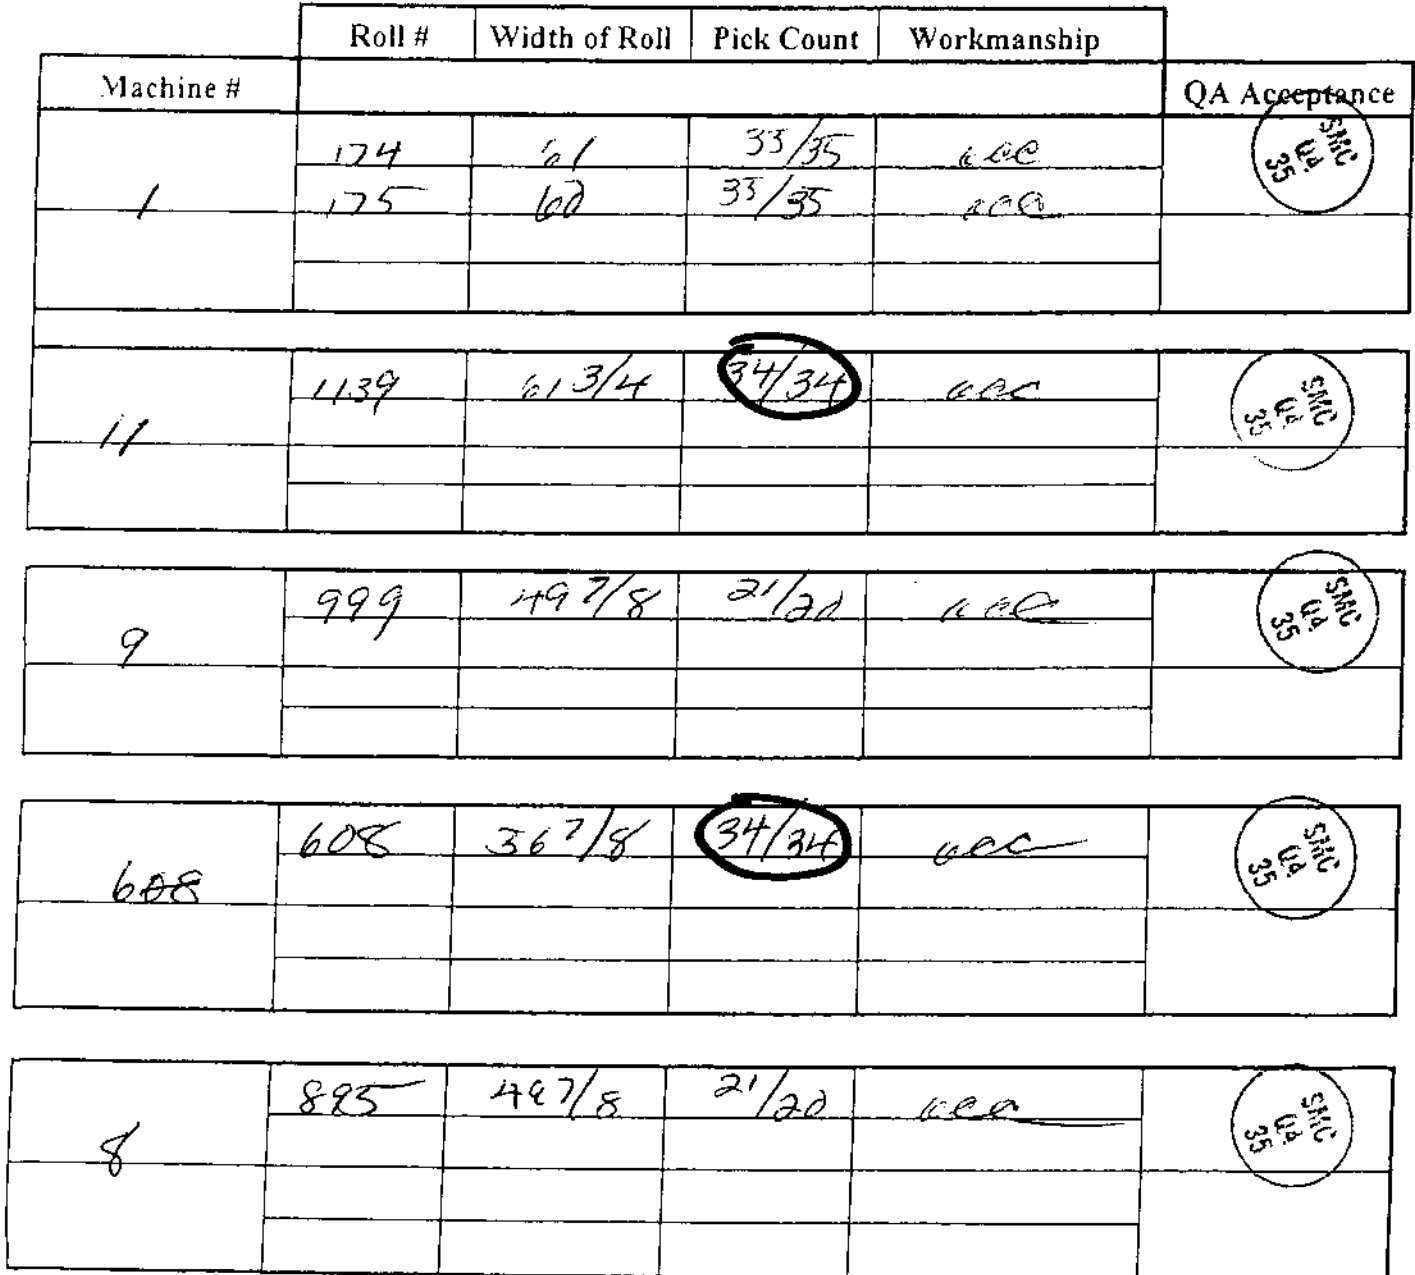 Roll # Width of Roll Pick Count Workmanship
Machine #
QA Acceptance
174 61 35/35 acc
SMC
QA
35
1 175 60 35/35 acc
1139 61 3/4 34/34 acc
SMC
QA
35
11
999 49 7/8 21/20 acc
SMC
QA
35
9
608 36 7/8 34/34 acc
SMC
QA
35
608
895 49 7/8 21/20 acc
SMC
QA
35
8